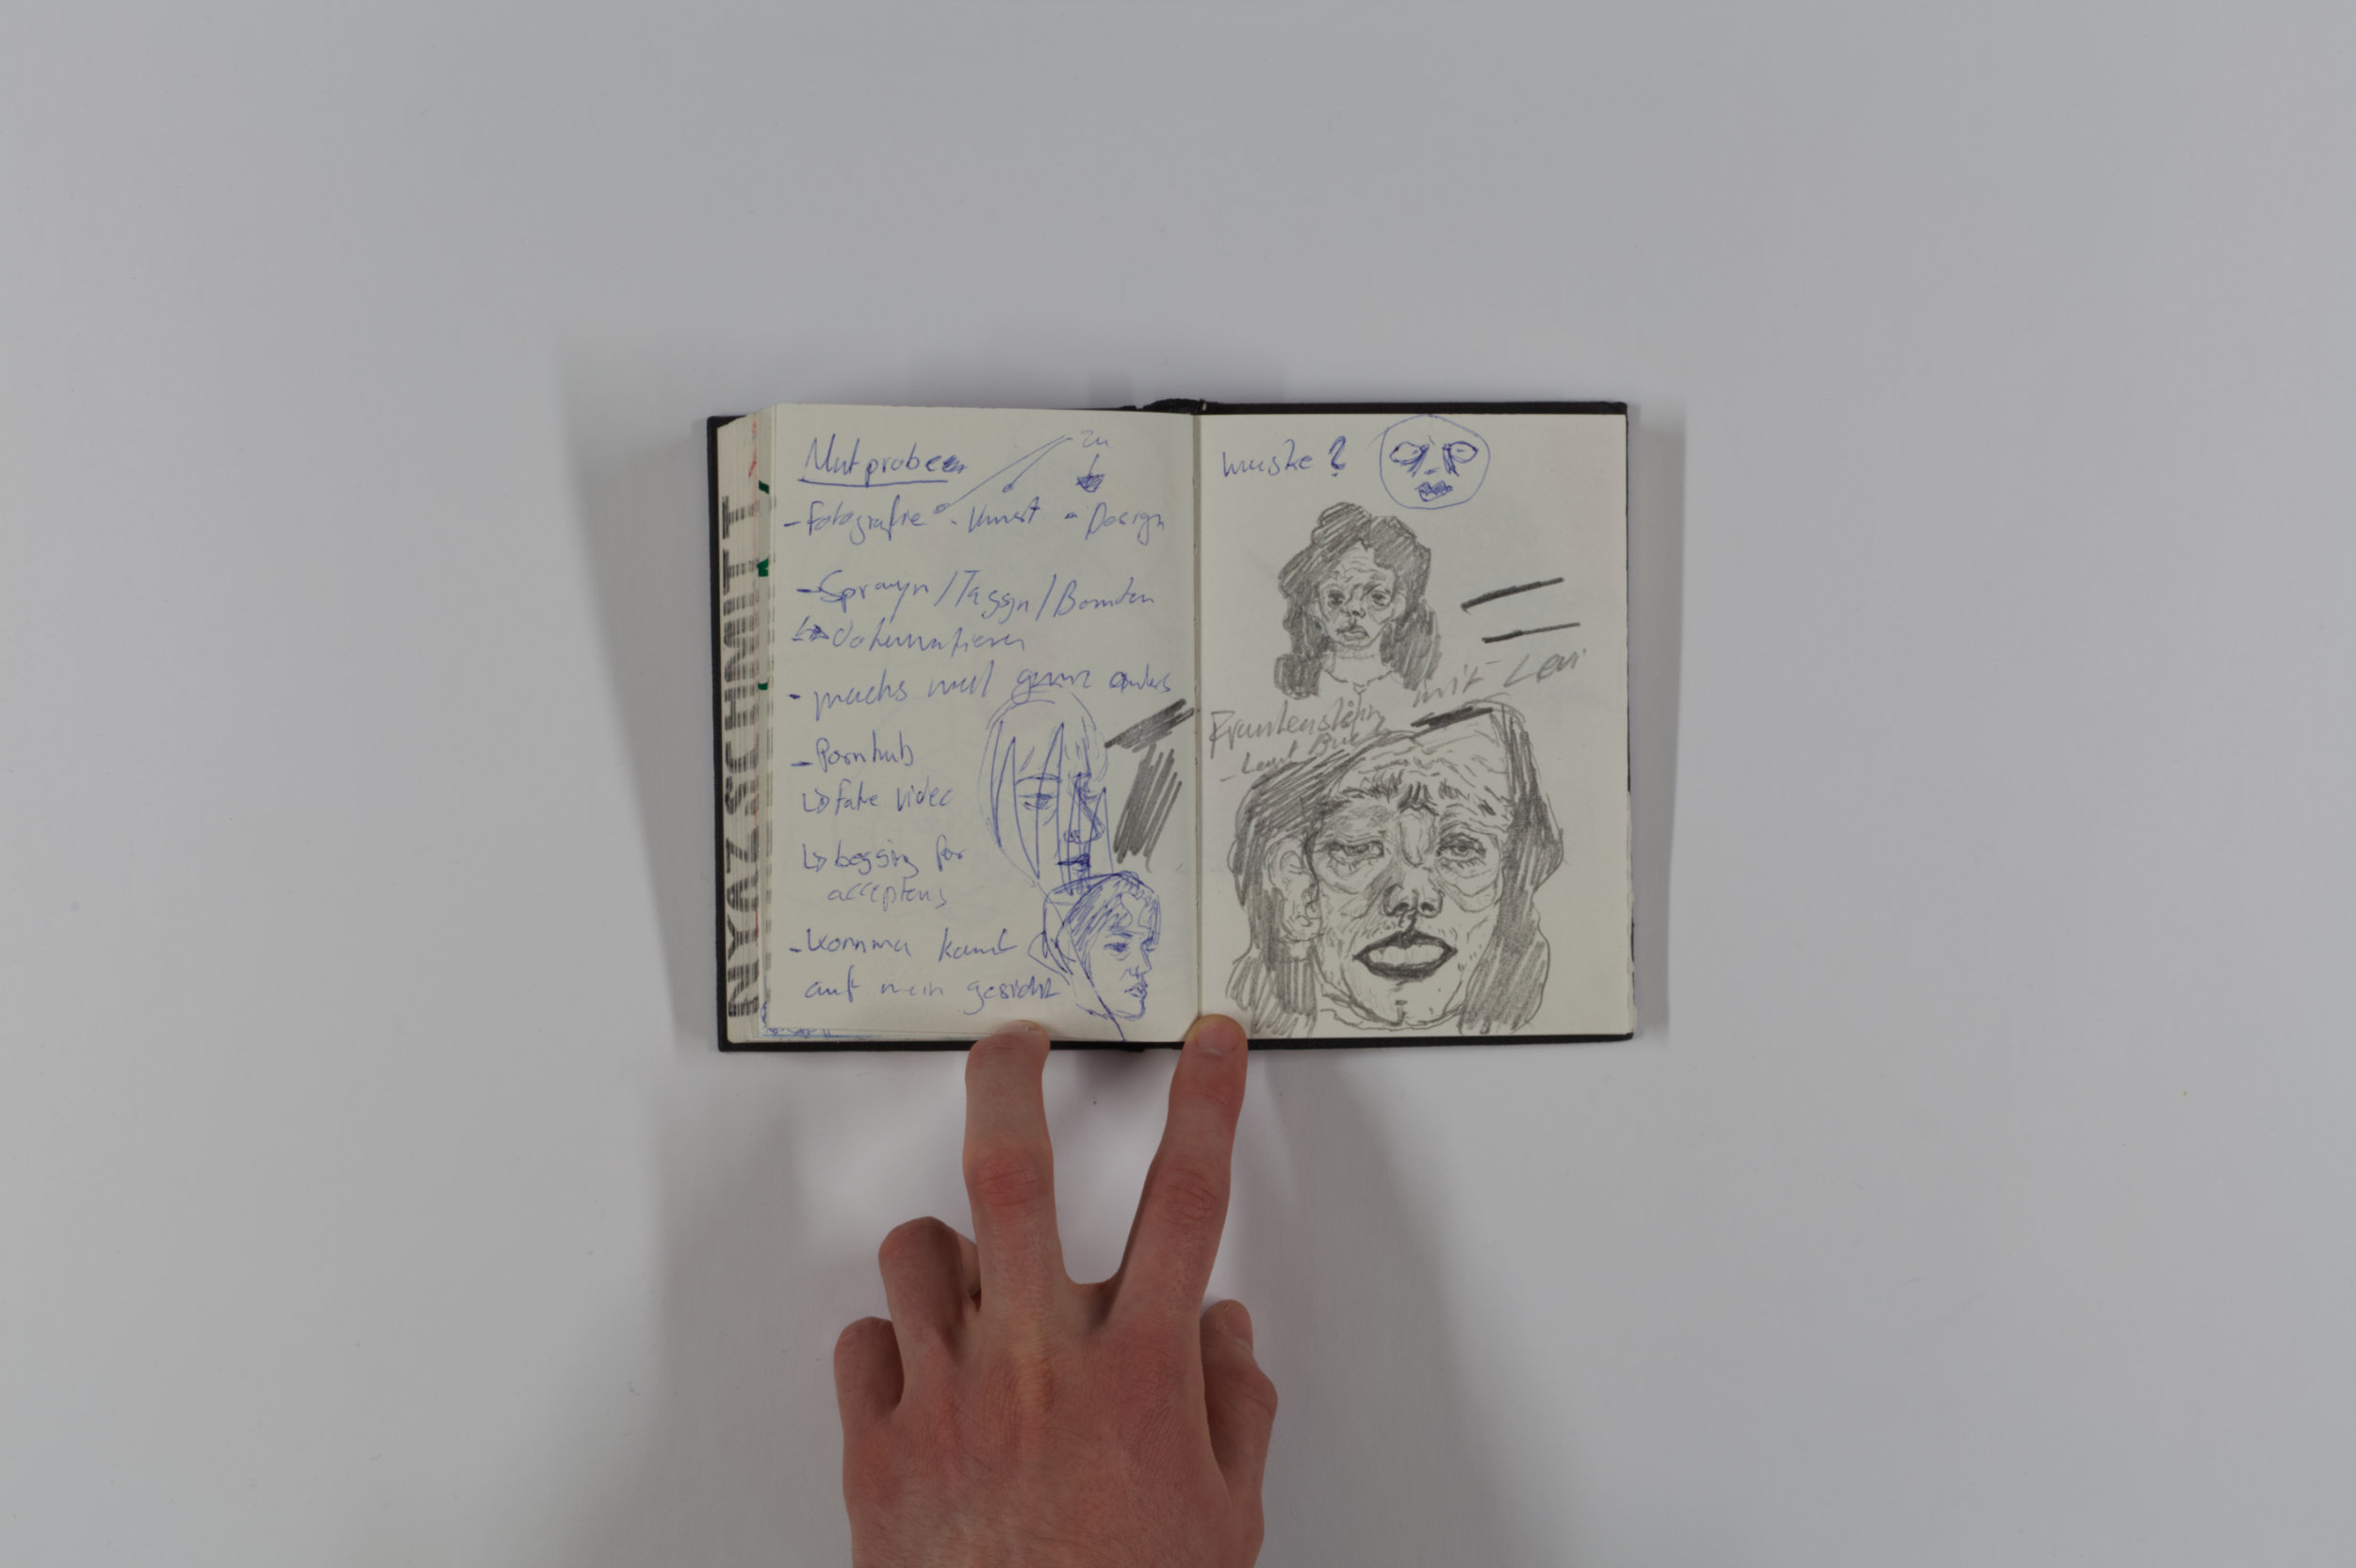 Mutproben
zu
- Fotografie - Kunst - Design
- Sprayn / Taggn / Bomben
↳ Dokumentieren
- machs mal ganz anders
- Pornhub
↳ fake video
↳ begging for
acceptens
- komma kamt
auf mein gesicht
maske?
mit Levi
NYAZ SCHMITT